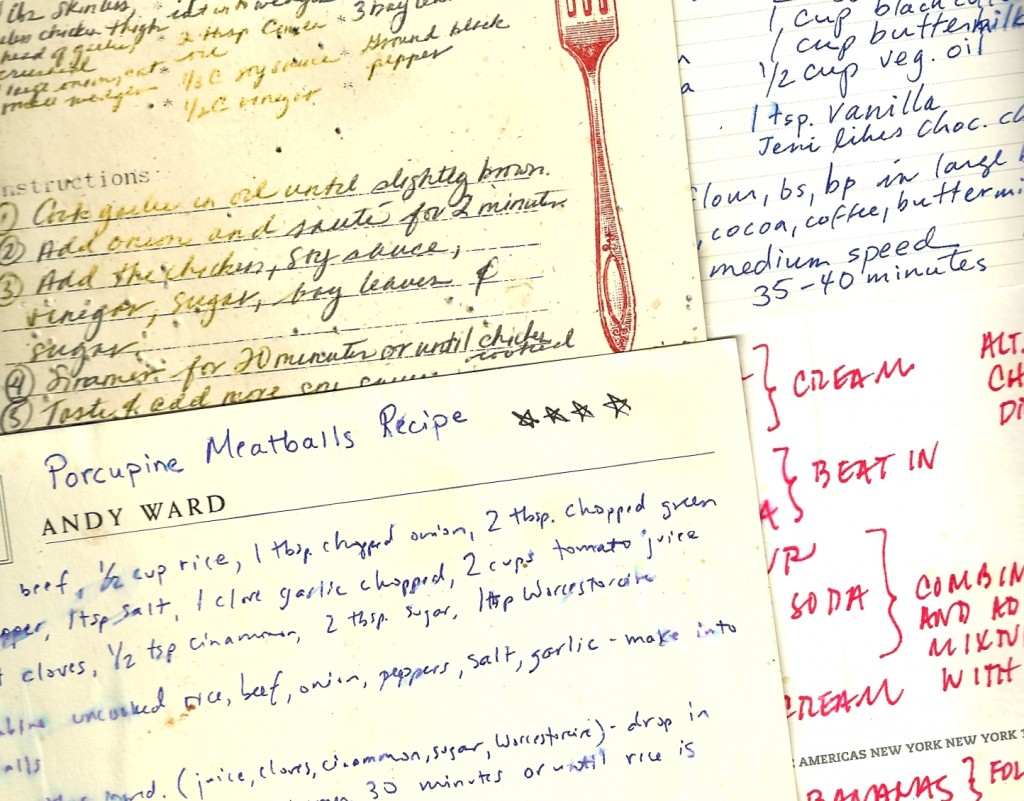 lbs skinless,
chicken thigh
head of garlic
crushed
large onion, cut
* 2 tbsp Canola
oil
* 1/3 C soy sauce
* 1/2 C vinegar
* 3 bay
* Ground black
pepper
nstructions:
① Cook garlic in oil until slightly brown.
② Add onion and sauté for 2 minutes
③ Add the chicken, soy sauce,
vinegar, sugar, bay leaves &
sugar.
④ Simmer for 20 minutes or until chicken
cooked
⑤ Taste & add more soy sauce
1 cup black
1 cup buttermilk
1/2 cup veg. oil
1 tsp. vanilla
Jeni likes choc. ch
flour, bs, bp in large
, cocoa, coffee, buttermi
medium speed
35-40 minutes
Porcupine Meatballs Recipe ☆☆☆☆
ANDY WARD
beef, 1/2 cup rice, 1 tbsp. chopped onion, 2 tbsp. chopped green
pper, 1 tsp salt, 1 clove garlic chopped, 2 cups tomato juice
cloves, 1/2 tsp cinammon, 2 tbsp. sugar, 1 tbsp Worcestorcire
uncooked rice, beef, onion, peppers, salt, garlic - make into
alls
ingrd. (juice, cloves, cinammon, sugar, Worcestorcire) - drop in
30 minutes or until rice is
} CREAM
ALT.
CH
} BEAT IN
SODA
} COMBIN
AND AD
MIXTU
WITH
CREAM
AMERICAS NEW YORK NEW YORK 1
BANANAS } FOL